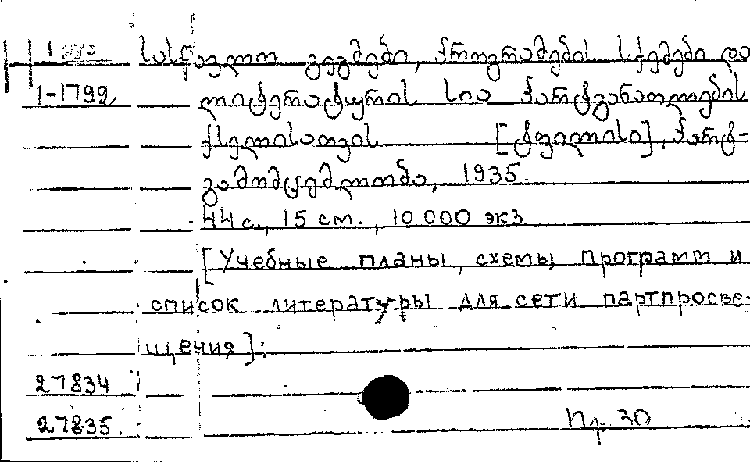 სასწავლო გეგმები, პროგრამების სქემები და
1-1799 ლიტერატურის სია პარტგანათლების
ქსელისათვის [ტფილისი], პარტ-
გამომცემლობა, 1935.
44 с., 15 ст., 10 000 экз
[Учебные планы, схемы программ и
список литературы для сети партпросве-
щения].
27834
27835. Пр. 30